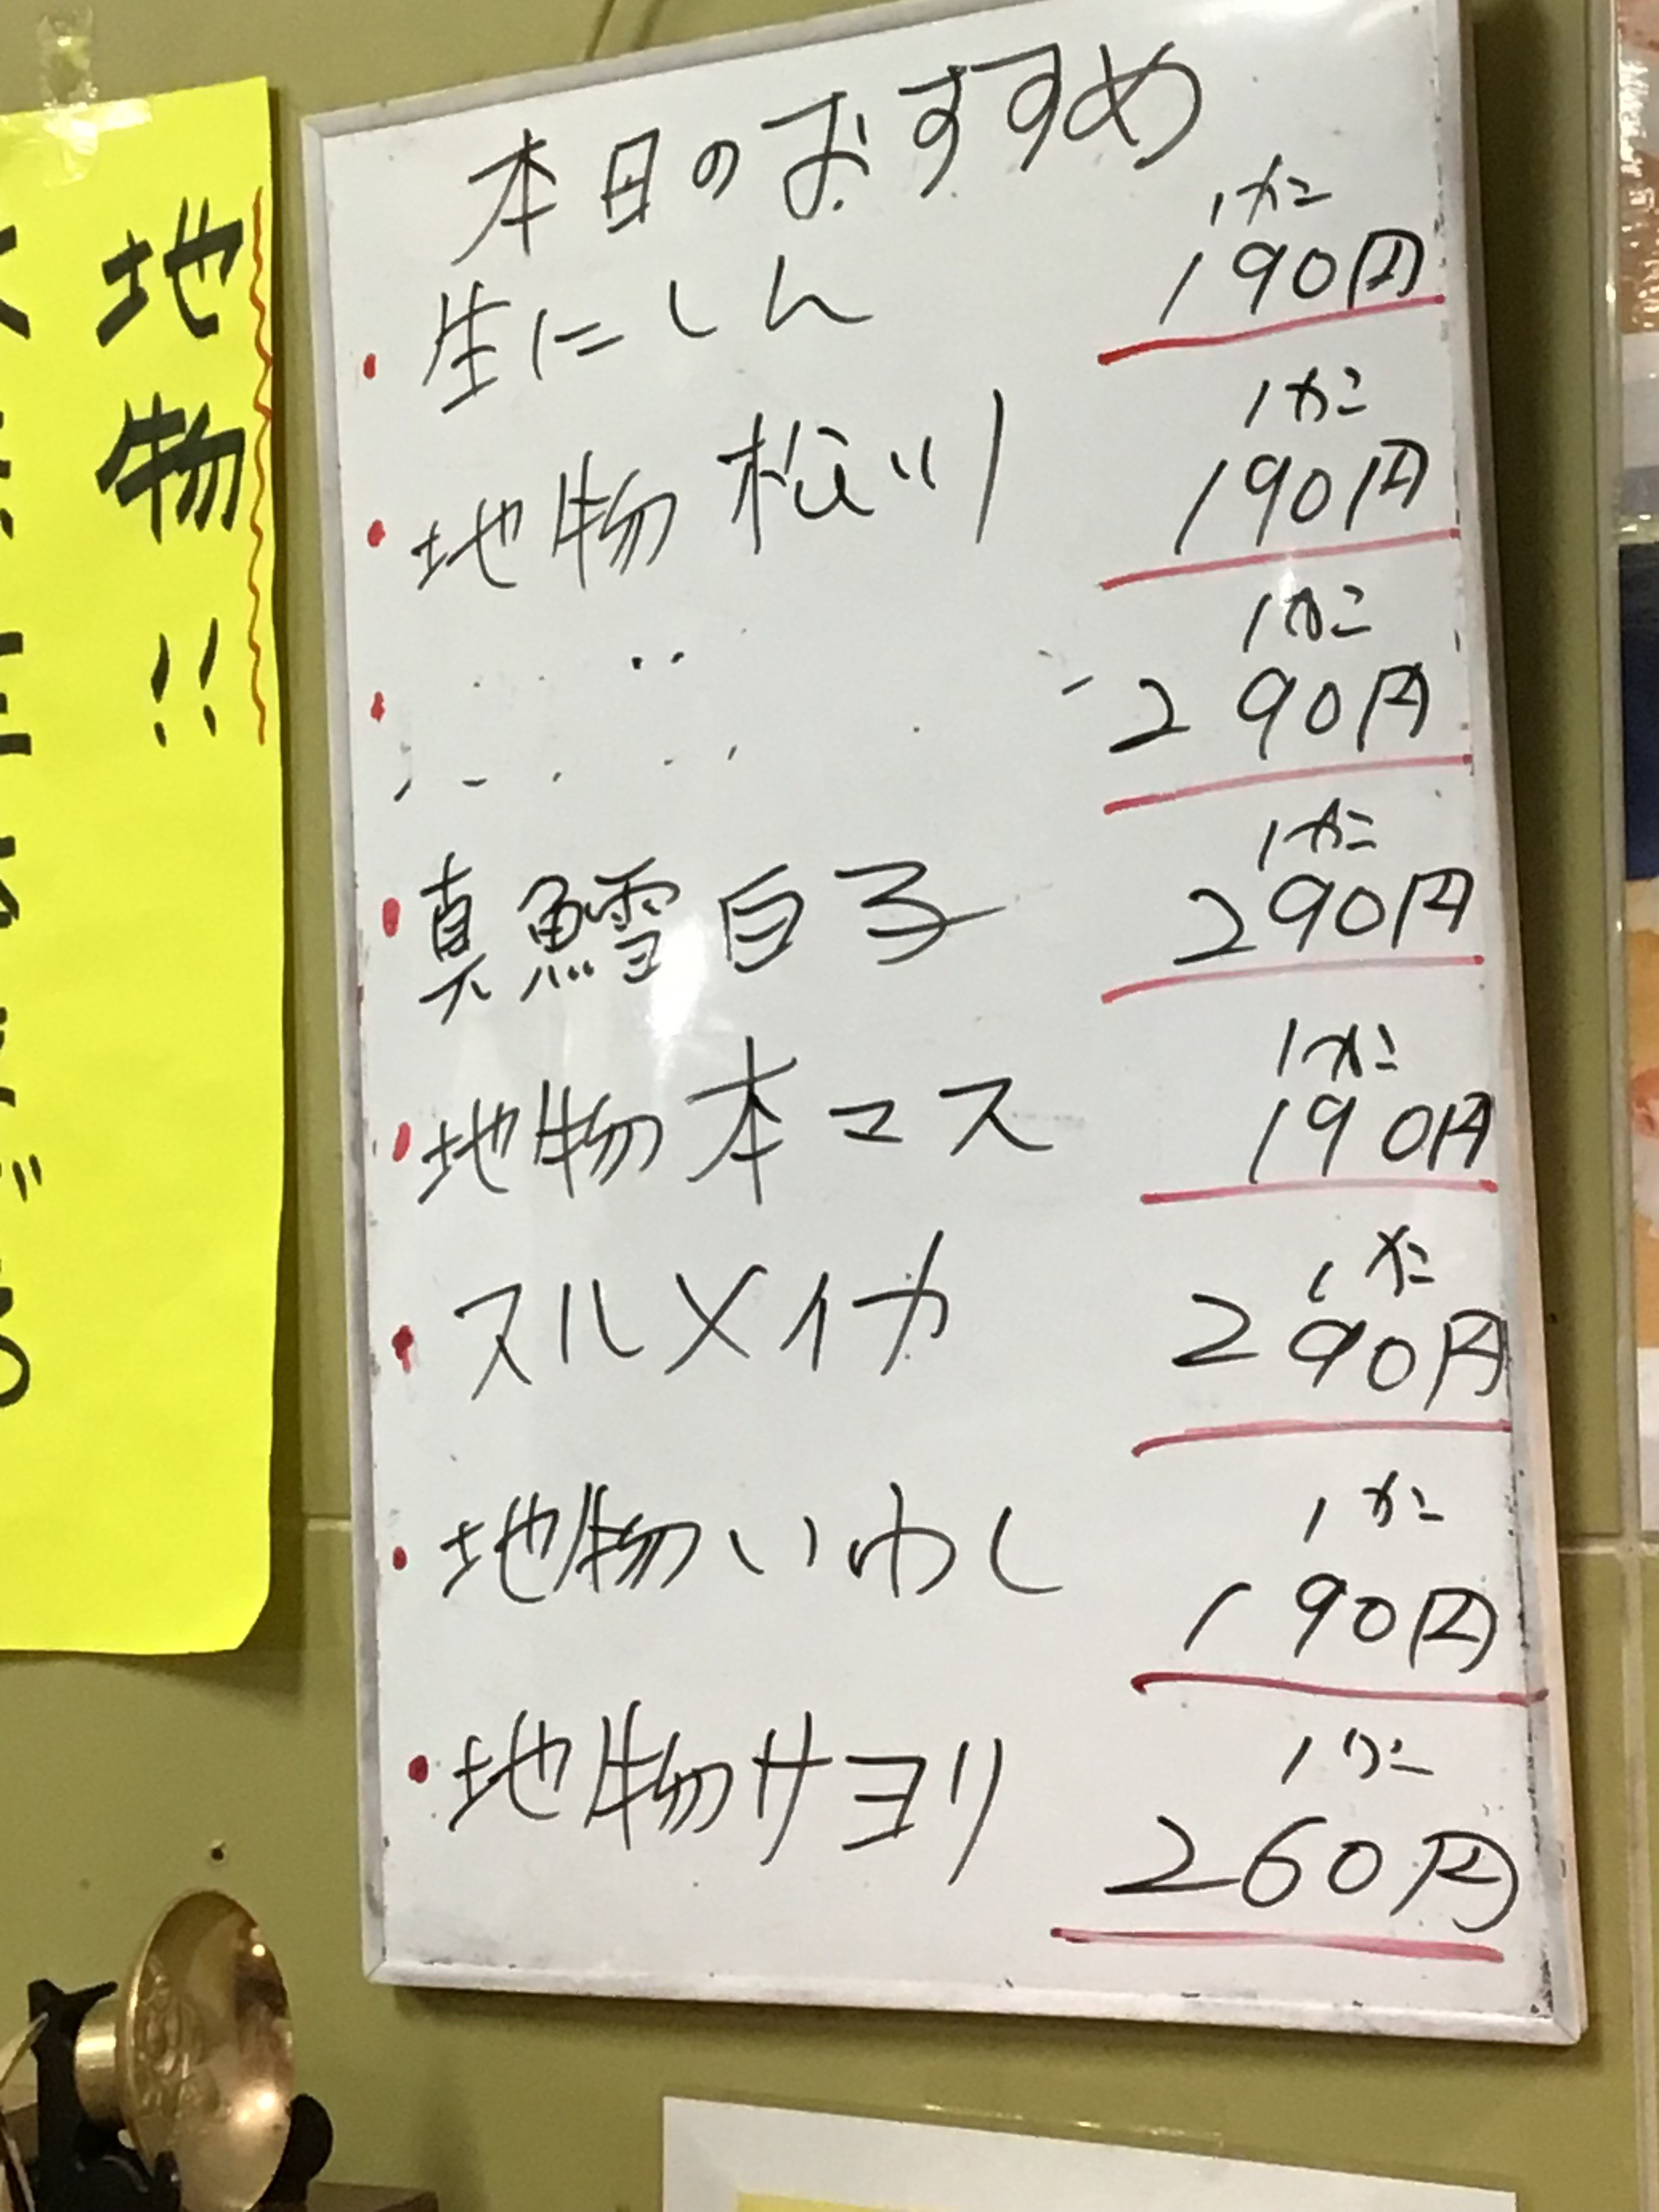 地物!!
本日のおすすめ
・生にしん
1かに
190円
・地物 松川
1かに
190円
・
1かに
290円
・真鱈白子
1かに
290円
・地物本マス
1かに
190円
・スルメイカ
1かに
290円
・地物いわし
1かに
190円
・地物サヨリ
1かに
260円